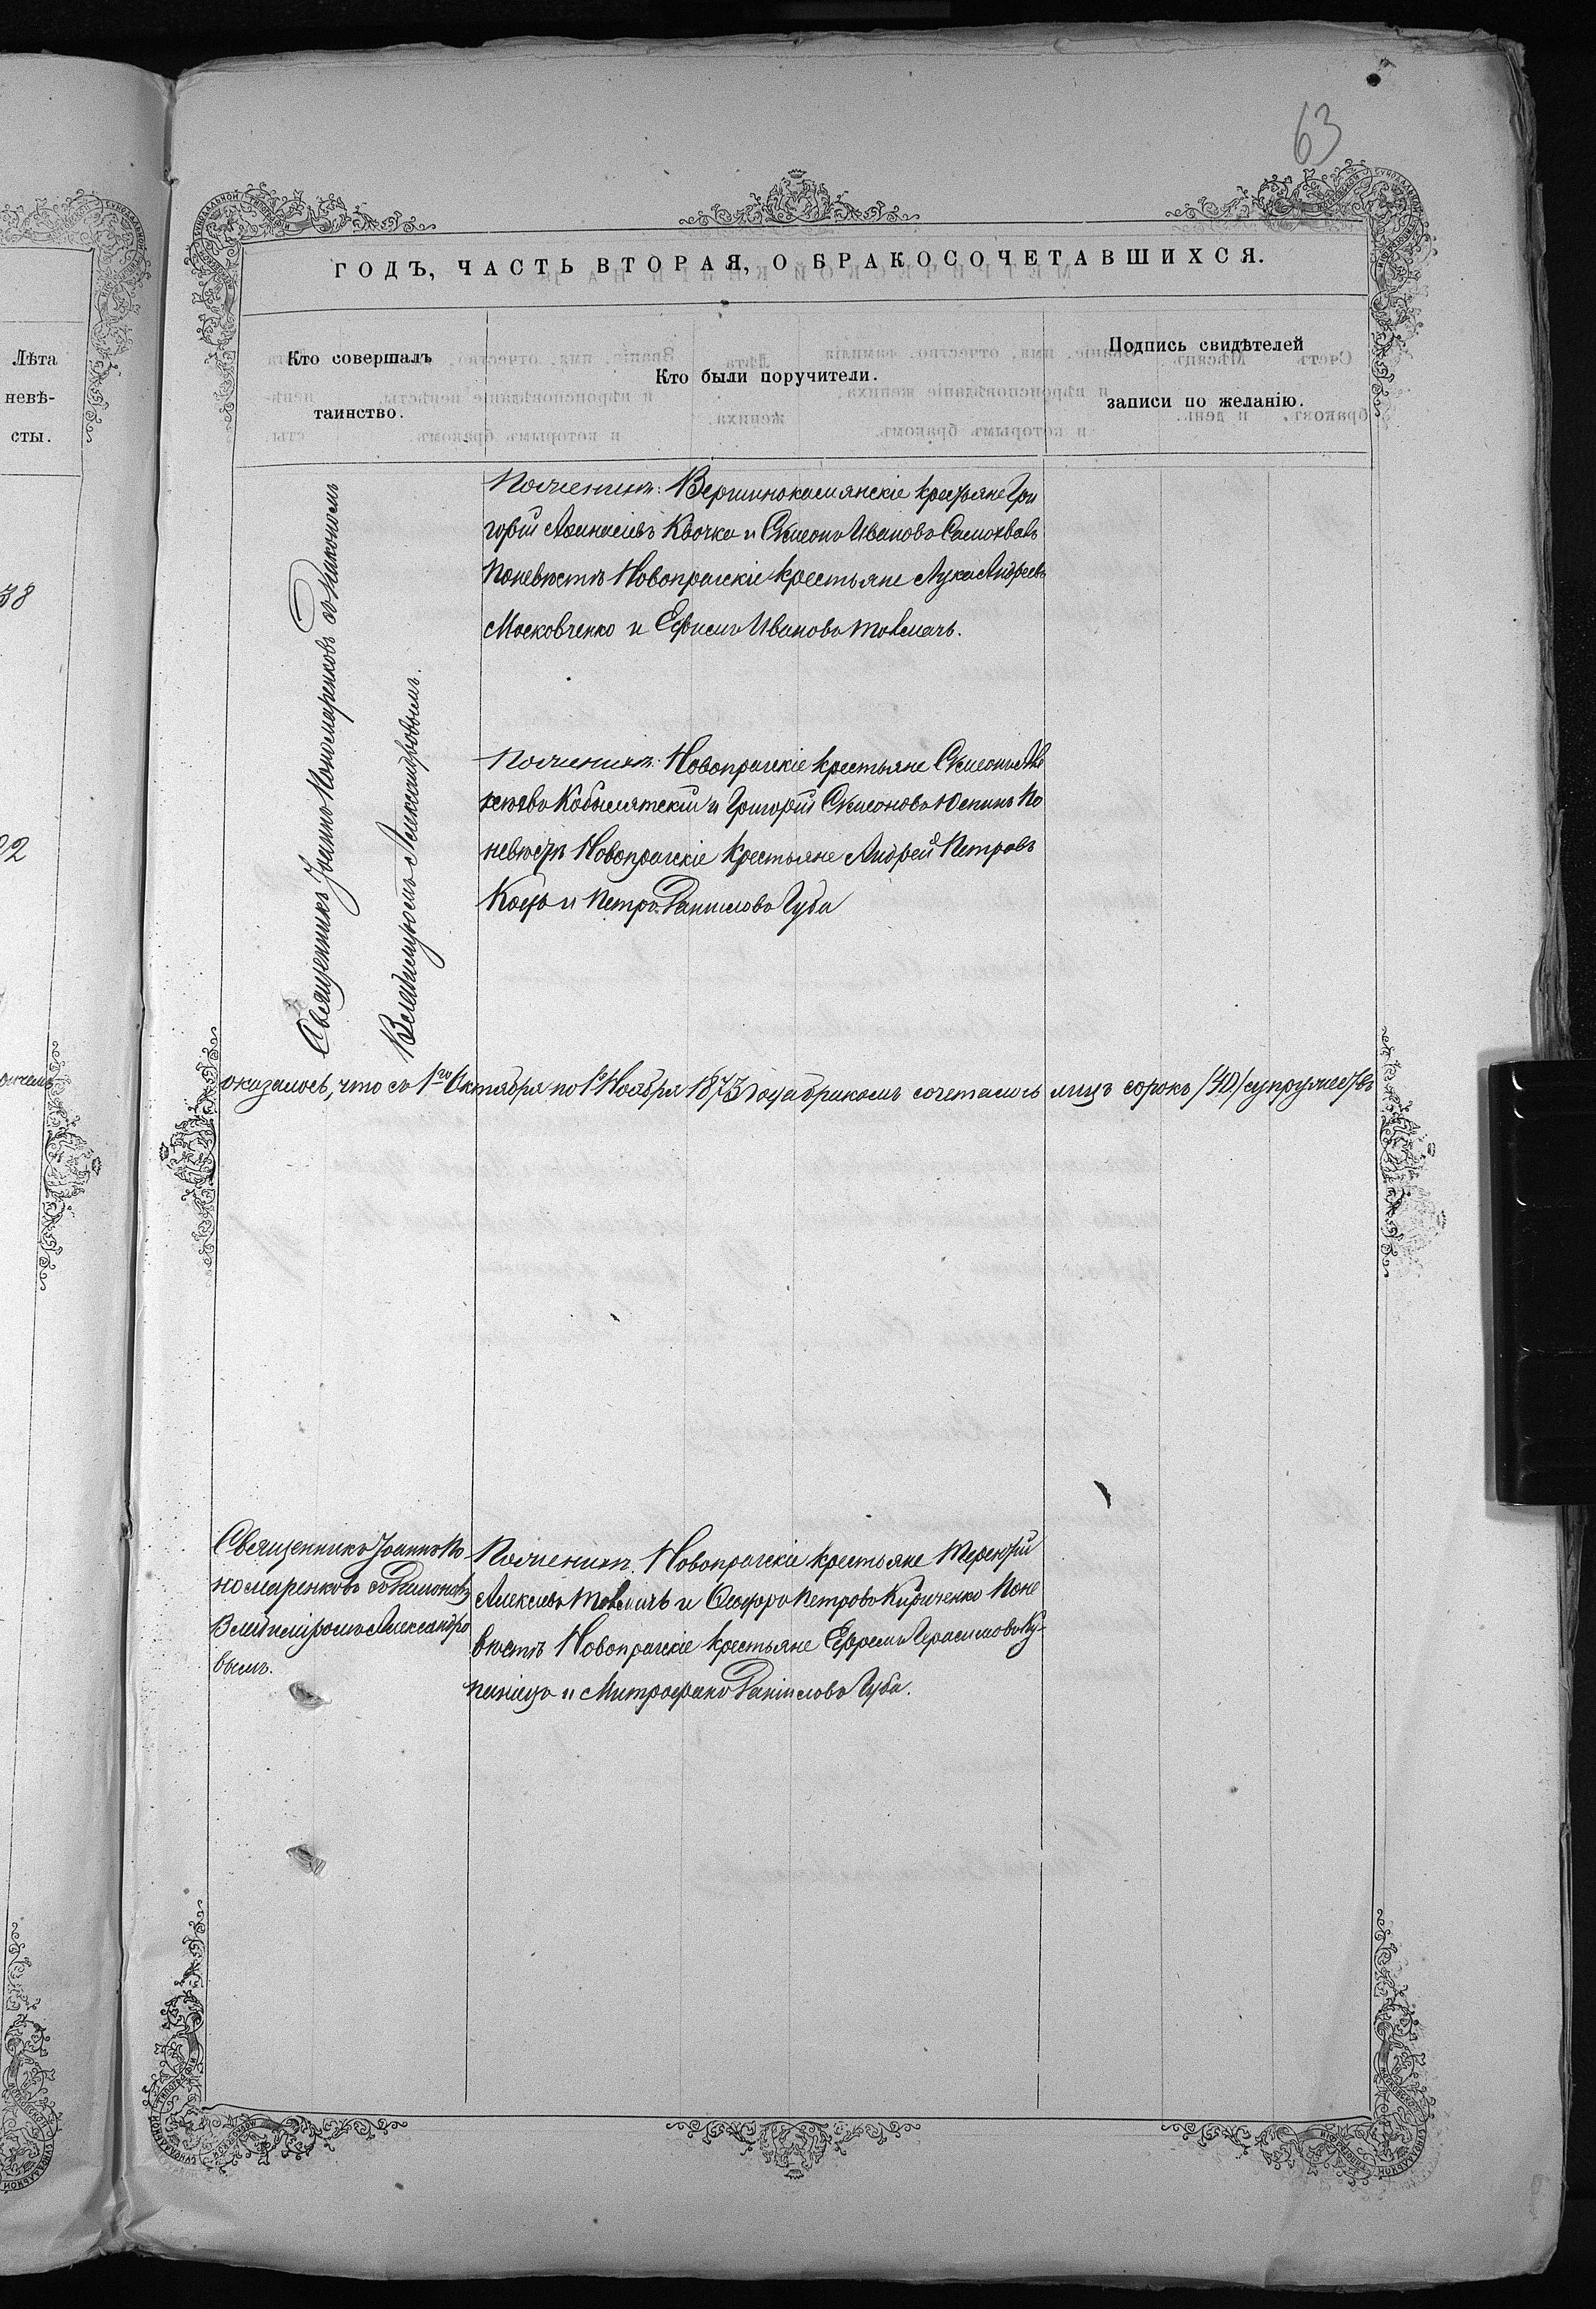 63
ГОДЪ, ЧАСТЬ ВТОРАЯ, О БРАКОСОЧЕТАВШИХСЯ.
Лѣта
невѣ-
сты.
Кто совершалъ
таинство.
Кто были поручители.
Подпись свидѣтелей
записи по желанію.
38
22
Священникъ Іоаннъ Пономаренковъ съ Диакономъ
Владиміромъ Александровымъ.
По женихѣ: Вершинокамянскіе крестьяне Гри
горій Аѳанасіевъ Квочка и Симеонъ Ивановъ Самохвалъ
По невѣстѣ Новопрагскіе крестьяне Лука Андреевъ
Московченко и Ефимъ Ивановъ Товмачь.
По женихѣ: Новопрагскіе крестьяне Симеонъ
Кобылятскій и Григорій Симеоновъ Юспинъ По
невѣстѣ Новопрагскіе крестьяне Андрей Петровъ
Коцъ и Петръ Даниловъ Губа
оказалось, что съ 1го Октября по 1е Ноября 1873 года бракомъ сочеталось лицъ сорокъ /40/ супружествъ
Священникъ Іоаннъ По
номаренковъ съ Диакономъ
Владиміромъ Александро
вымъ.
По женихѣ: Новопрагскіе крестьяне Терентій
Алексіевъ Товмачь и Петровъ Кириченко По не
вѣстѣ Новопрагскіе крестьяне Ефремъ Герасимовъ Ку-
паніцъ и Митрофанъ Даніиловъ Губа.